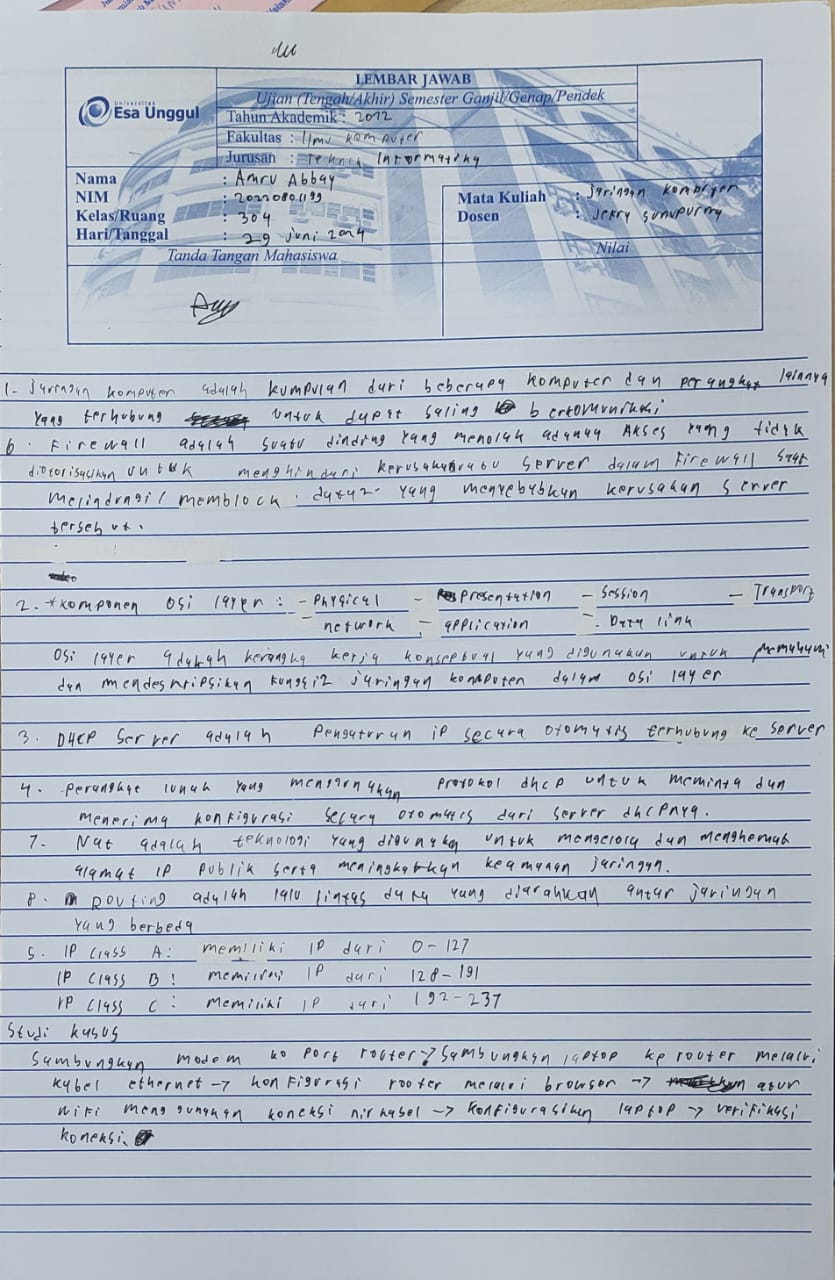 LEMBAR JAWAB
Ujian (Tengah/Akhir) Semester Ganjil/Genap/Pendek
Universitas
Esa Unggul
Tahun Akademik : 2022
Fakultas : Ilmu Komputer
Jurusan : Teknik Informatika
Nama : Amru Abbay
NIM : 20220801199
Kelas/Ruang : 304
Hari/Tanggal : 29 Juni 2024
Mata Kuliah : Jaringan Komputer
Dosen : Jefry
Tanda Tangan Mahasiswa
Nilai
1. Jaringan komputer adalah kumpulan dari beberapa komputer dan perangkat lainnya
yang terhubung untuk dapat saling berkomunikasi
6. Firewall adalah suatu dinding yang menolak adanya Akses yang tidak
diotorisasikan untuk menghindari kerusakan server dalam Firewall saat
melindungi/ memblock data2 yang menyebabkan kerusakan server
tersebut.
2. * Komponen OSI layer : - Physical - Presentation - Session - Transport
- network - application - Data link
OSI layer adalah kerangka kerja konseptual yang digunakan untuk memahami
dan mendeskripsikan fungsi2 jaringan komputer dalam OSI layer
3. DHCP Server adalah Pengaturan IP secara otomatis terhubung ke server
4. Perangkat lunak yang menggunakan protokol dhcp untuk meminta dan
menerima konfigurasi secara otomatis dari server dhcpnya.
7. Nat adalah teknologi yang digunakan untuk mengelola dan menghemat
alamat IP publik serta meningkatkan keamanan jaringan.
8. Routing adalah lalu lintas data yang diarahkan antar jaringan
yang berbeda
5. IP Class A : memiliki IP dari 0-127
IP Class B : memiliki IP dari 128-191
IP Class C : memiliki IP dari 192-237
Studi kasus
Sambungkan modem ke port router -> Sambungkan laptop ke router melalui
kabel ethernet -> konfigurasi router melalui browser -> atur
wifi menggunakan koneksi nirkabel -> Konfigurasikan laptop -> verifikasi
koneksi.